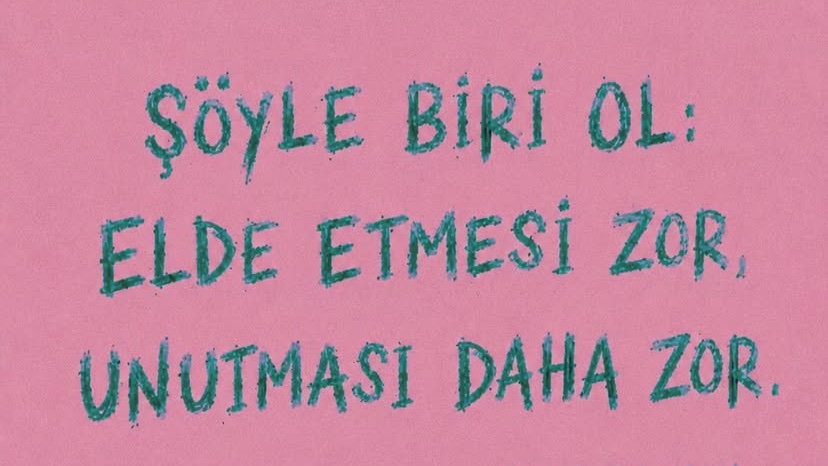 ŞÖYLE BİRİ OL:
ELDE ETMESİ ZOR,
UNUTMASI DAHA ZOR.